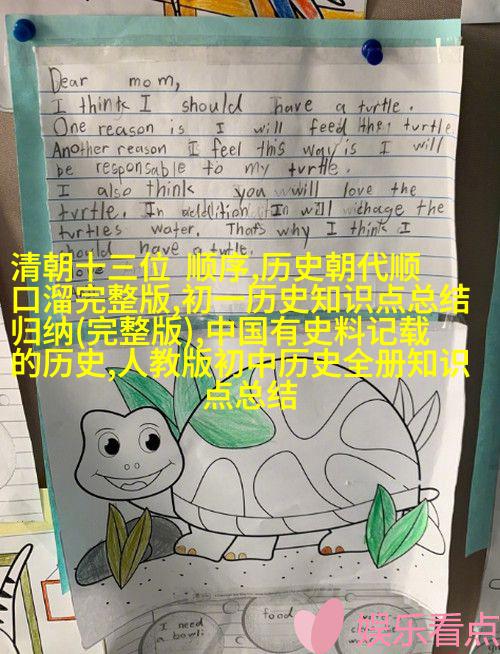 Dear mom,
I think I should have a turtle.
One reason is I will feed the turtle.
Another reason I feel this way is I will
be responsable to my turtle.
I also think you will love the
turtle. In addition In will chage the
turtles water. Thats why I think I
should have a turtle.
love
清朝十三位 顺序,历史朝代顺
口溜完整版,初一历史知识点总结
归纳(完整版),中国有史料记载
的历史,人教版初中历史全册知识
点总结
I need
a bowl
food
娱乐看点